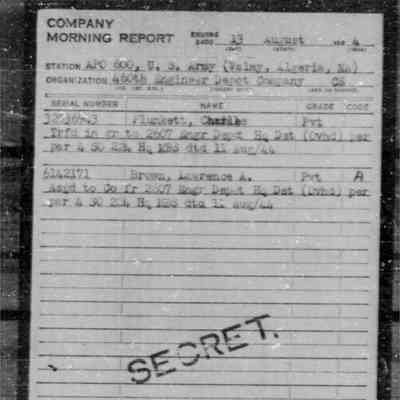 COMPANY
MORNING REPORT ENDING DATE 13 August 194 4
(DAY) (MONTH) (YEAR)
STATION APO 600, U. S. Army (Valmy, Algeria, NA)
ORGANIZATION 460th Engineer Depot Company CE
SERIAL NUMBER NAME GRADE CODE
Plunkett, Charles Pvt
Trfd in gr to 2607 Engr Depot Hq Det (Ovhd) per
par 4 SO 224 Hq MBS dtd 11 Aug/44
6142171 Brown, Lawrence A. Pvt A
Asgd to Co fr 2607 Engr Depot Hq Det (Ovhd) per
par 4 SO 224 Hq MBS dtd 11 Aug/44
SECRET.